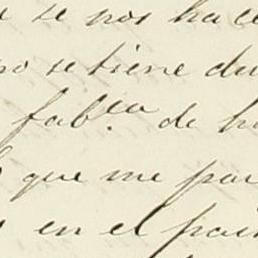 se nos hace
no se tiene du
fab.ca de h
que me pa
en el pais